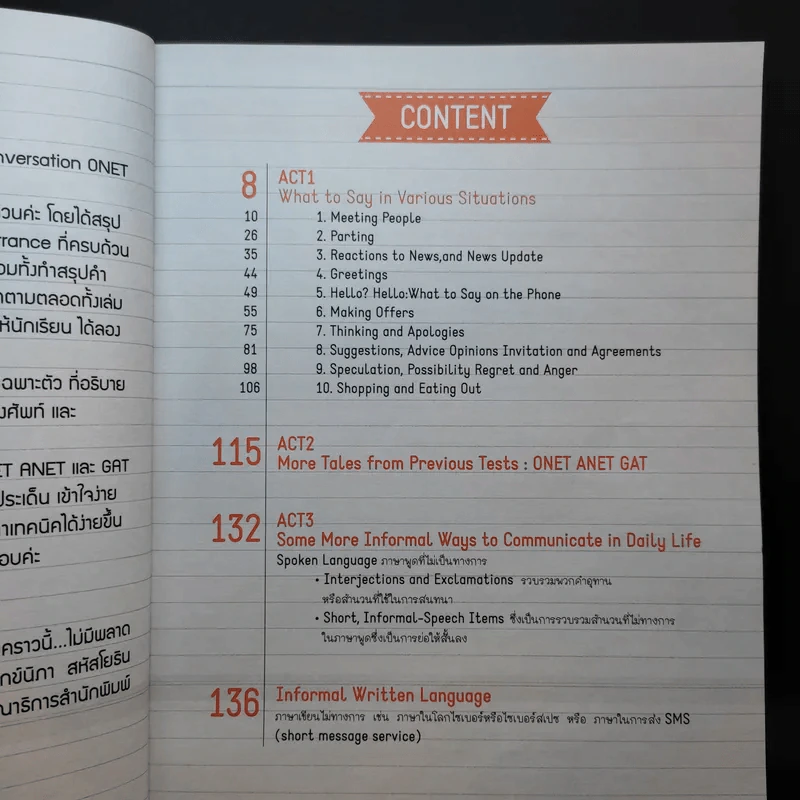 nversation ONET
วนค่ะ โดยได้สรุป
rrance ที่ครบถ้วน
วมทั้งทำสรุปคำ
าตามตลอดทั้งเล่ม
ห้นักเรียน ได้ลอง
ฉพาะตัว ที่อธิบาย
งศัพท์ และ
ET ANET และ GAT
ประเด็น เข้าใจง่าย
าเทคนิคได้ง่ายขึ้น
อบค่ะ
คราวนี้...ไม่มีพลาด
ทษ์นิภา สหัสโยธิน
ณาธิการสำนักพิมพ์
CONTENT
8 ACT1
What to Say in Various Situations
10 1. Meeting People
26 2. Parting
35 3. Reactions to News,and News Update
44 4. Greetings
49 5. Hello? Hello:What to Say on the Phone
55 6. Making Offers
75 7. Thinking and Apologies
81 8. Suggestions, Advice Opinions Invitation and Agreements
98 9. Speculation, Possibility Regret and Anger
106 10. Shopping and Eating Out
115 ACT2
More Tales from Previous Tests : ONET ANET GAT
132 ACT3
Some More Informal Ways to Communicate in Daily Life
Spoken Language ภาษาพูดที่ไม่เป็นทางการ
• Interjections and Exclamations รวบรวมพวกคำอุทาน
หรือสำนวนที่ใช้ในการสนทนา
• Short, Informal-Speech Items ซึ่งเป็นการรวบรวมสำนวนที่ไม่ทางการ
ในภาษาพูดซึ่งเป็นการย่อให้สั้นลง
136 Informal Written Language
ภาษาเขียนไม่ทางการ เช่น ภาษาในโลกไซเบอร์หรือไซเบอร์สเปซ หรือ ภาษาในการส่ง SMS
(short message service)